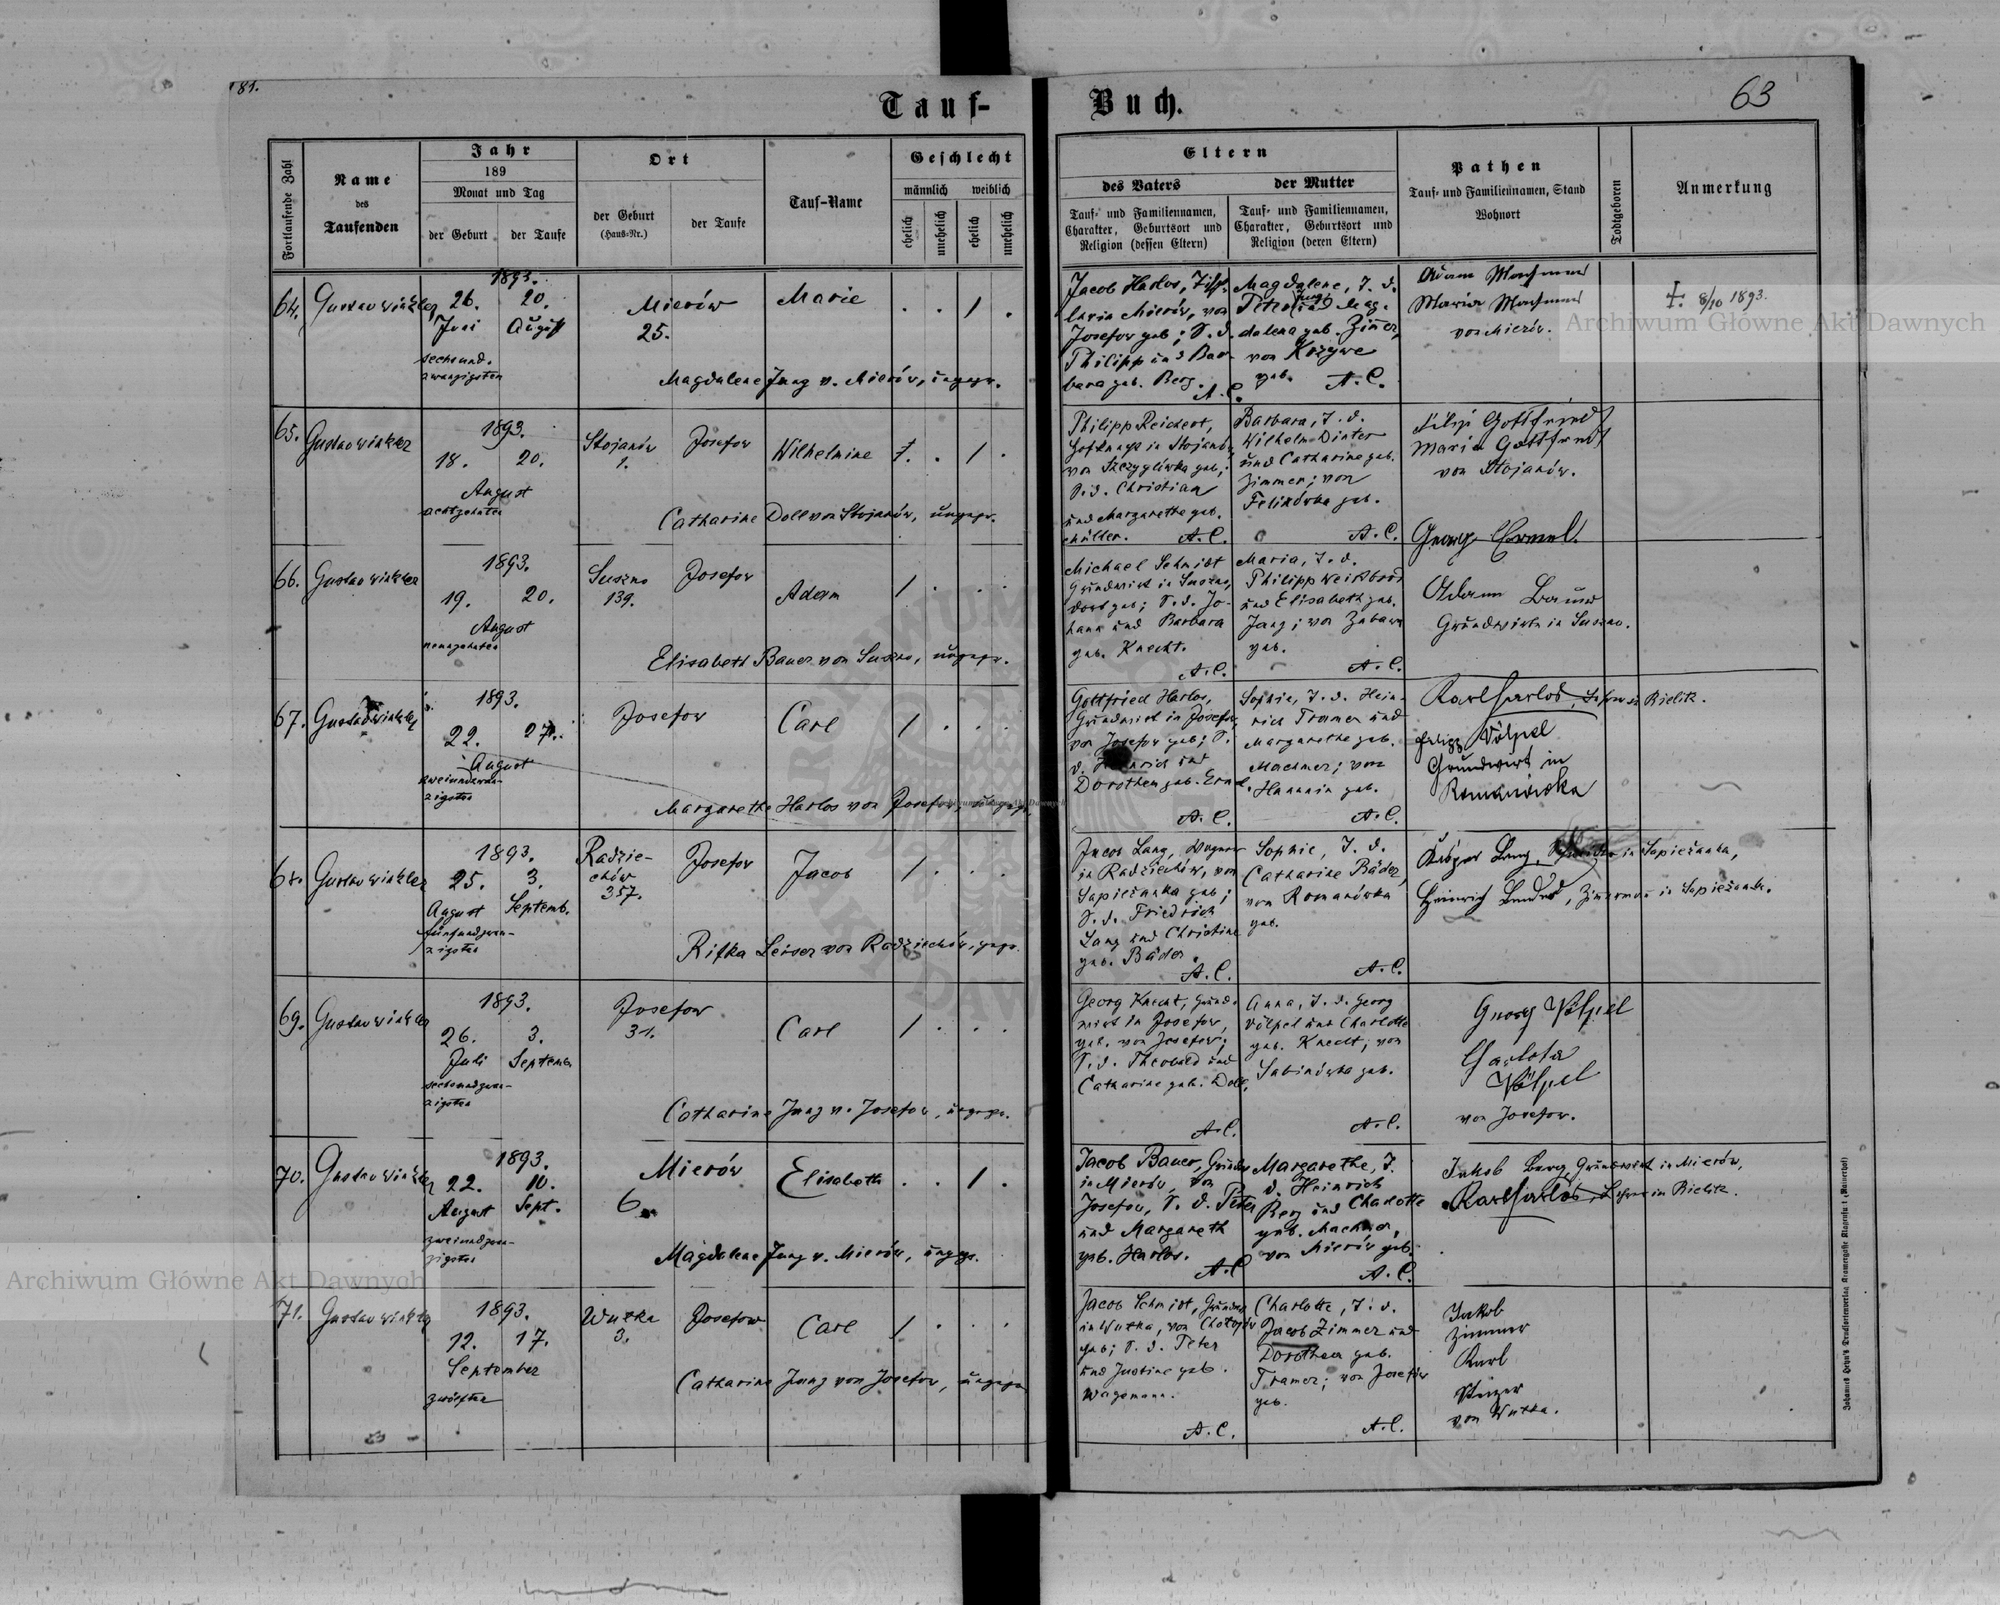 81.
Tauf-
Buch.
63
Fortlaufende Zahl
Name
des
Taufenden
Jahr
189
Monat und Tag
der Geburt
der Taufe
Ort
der Geburt
(Haus-Nr.)
der Taufe
Tauf-Name
Geschlecht
männlich
weiblich
ehelich
unehelich
ehelich
unehelich
Eltern
des Vaters
der Mutter
Tauf- und Familiennamen,
Charakter, Geburtsort und
Religion (dessen Eltern)
Tauf- und Familiennamen,
Charakter, Geburtsort und
Religion (deren Eltern)
Pathen
Tauf- und Familiennamen, Stand
Wohnort
Todtgeboren
Anmerkung
64.
Gustav Winkler
1893.
26. 20.
Juni August
sechsund-
zwanzigsten
Mierów
25.
Marie
Magdalene Jung v. Mierów, ungepr.
Jacob Harlos,
in Mierów, von
Josefow geb; S. d.
Philipp und Bar-
bara geb. Berg.
A. C.
Magdalene, T. d.
Peter Jung und Mag-
dalena geb. Zimer,
von
geb. A. C.
Adam
Maria
von Mierów.
+ 8/10 1893.
65.
Gustav Winkler
1893.
18. 20.
August
achtzehnten
Stojanów
1.
Josefow
Wilhelmine
Catharine Doll von Stojanów, ungepr.
Philipp Reichert,
in Stojanów
von Szczyglówka geb.;
S. d. Christian
und Margarethe geb.
Müller. A. C.
Barbara, T. d.
Wilhelm Dinter
und Catharine geb.
Zimmer; von
geb.
A. C.
Filip Gottfried
Maria Gottfried
von Stojanów.
Georg
66.
Gustav Winkler
1893.
19. 20.
August
neunzehnten
Suszno
139.
Josefow
Adam
Elisabeth Bauer von Suszno, ungepr.
Michael Schmidt
Grundwirt in Suszno,
dort geb; S. d. Jo-
hann und Barbara
geb. Knecht.
A. C.
Maria, T. d.
Philipp
und Elisabeth geb.
Jung; von
geb.
A. C.
Adam Bauer
Grundwirth in Suszno.
67.
Gustav Winkler
1893.
22. 27.
August
zweiundzwan-
zigsten
Josefow
Carl
Margarethe Harlos von Josefow, ungepr.
Gottfried Harlos,
Grundwirt in Josefow,
von Josefow geb; S.
d. Heinrich und
Dorothea geb.
A. C.
Sophie, T. d. Hein-
rich Tramer und
Margarethe geb.
Machmer; von
Hanunin geb.
A. C.
Karl Harlos, Lehrer in Bielitz.
Filipp Völpel
Grundwirt in
Romanówka
68.
Gustav Winkler
1893.
25. 3.
August Septemb.
fünfundzwan-
zigsten
Radzie-
chów
357.
Josefow
Jacob
Rifka Leiser von Radziechów, gepr.
Jacob Lang, Wagner
in Radziechów, von
Sapieżanka geb;
S. d. Friedrich
Lang und Christine
geb. Bäder.
A. C.
Sophie, T. d.
Catharine Bäder,
von Romanówka
geb.
A. C.
Kaspar Lang, in Sapieżanka,
Heinrich Bender, Zimerman in Sapieżanka.
69.
Gustav Winkler
1893.
26. 3.
Juli September
sechsundzwan-
zigsten
Josefow
31.
Carl
Catharine Jung v. Josefow, ungepr.
Georg Knecht, Grund-
wirt in Josefow,
geb. von Josefow;
S. d. Theobald und
Catharine geb. Doll.
A. C.
Anna, T. d. Georg
Völpel und Charlotte
geb. Knecht; von
Sabinówka geb.
A. C.
Georg Völpel
Charlota
Völpel
von Josefow.
70.
Gustav Winkler
1893.
22. 10.
August Sept.
zweiundzwan-
zigsten
Mierów
6.
Elisabeth
Magdalene Jung v. Mierów, ungepr.
Jacob Bauer,
in Mierów, von
Josefow, S. d. Peter
und Margareth
geb. Harlos.
A. C.
Margarethe, T.
d. Heinrich
Berg und Charlotte
geb. Machmer,
von Mierów geb.
A. C.
Jakob Berg, Grundwirt in Mierów,
Karl Harlos, Lehrer in Bielitz.
71.
Gustav Winkler
1893.
12. 17.
September
zwölften
Wutka
3.
Josefow
Carl
Catharine Jung von Josefow, ungepr.
Jacob Schmidt,
in Wutka, von
geb; S. d. Peter
und Justine geb.
Wagemann.
A. C.
Charlotte, T. d.
Jacob Zimmer und
Dorothea geb.
Tramer; von Josefow
geb.
A. C.
Jakob
Zimmer
Karl
von Wutka.
Archiwum Główne Akt Dawnych
Archiwum Główne Akt Dawnych